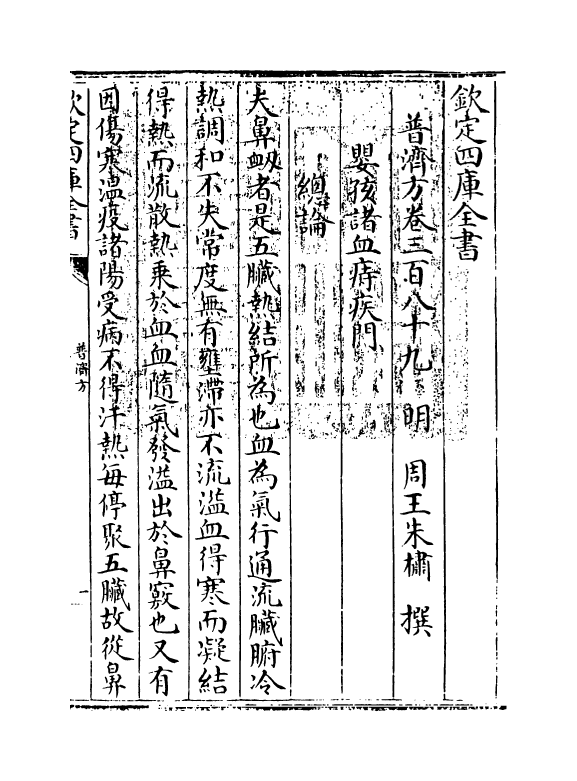 欽定四庫全書
普濟方卷三百八十九　明　周王朱橚　撰
嬰孩諸血痔疾門
總論
夫鼻衂者是五臟熱結所為也血為氣行通流臟腑冷
熱調和不失常度無有壅滯亦不流溢血得寒而凝結
得熱而流散熱乗於血血隨氣發溢出於鼻竅也又有
因傷寒溫疫諸陽受病不得汗熱每停聚五臟故從鼻
欽定四庫全書
普濟方
一